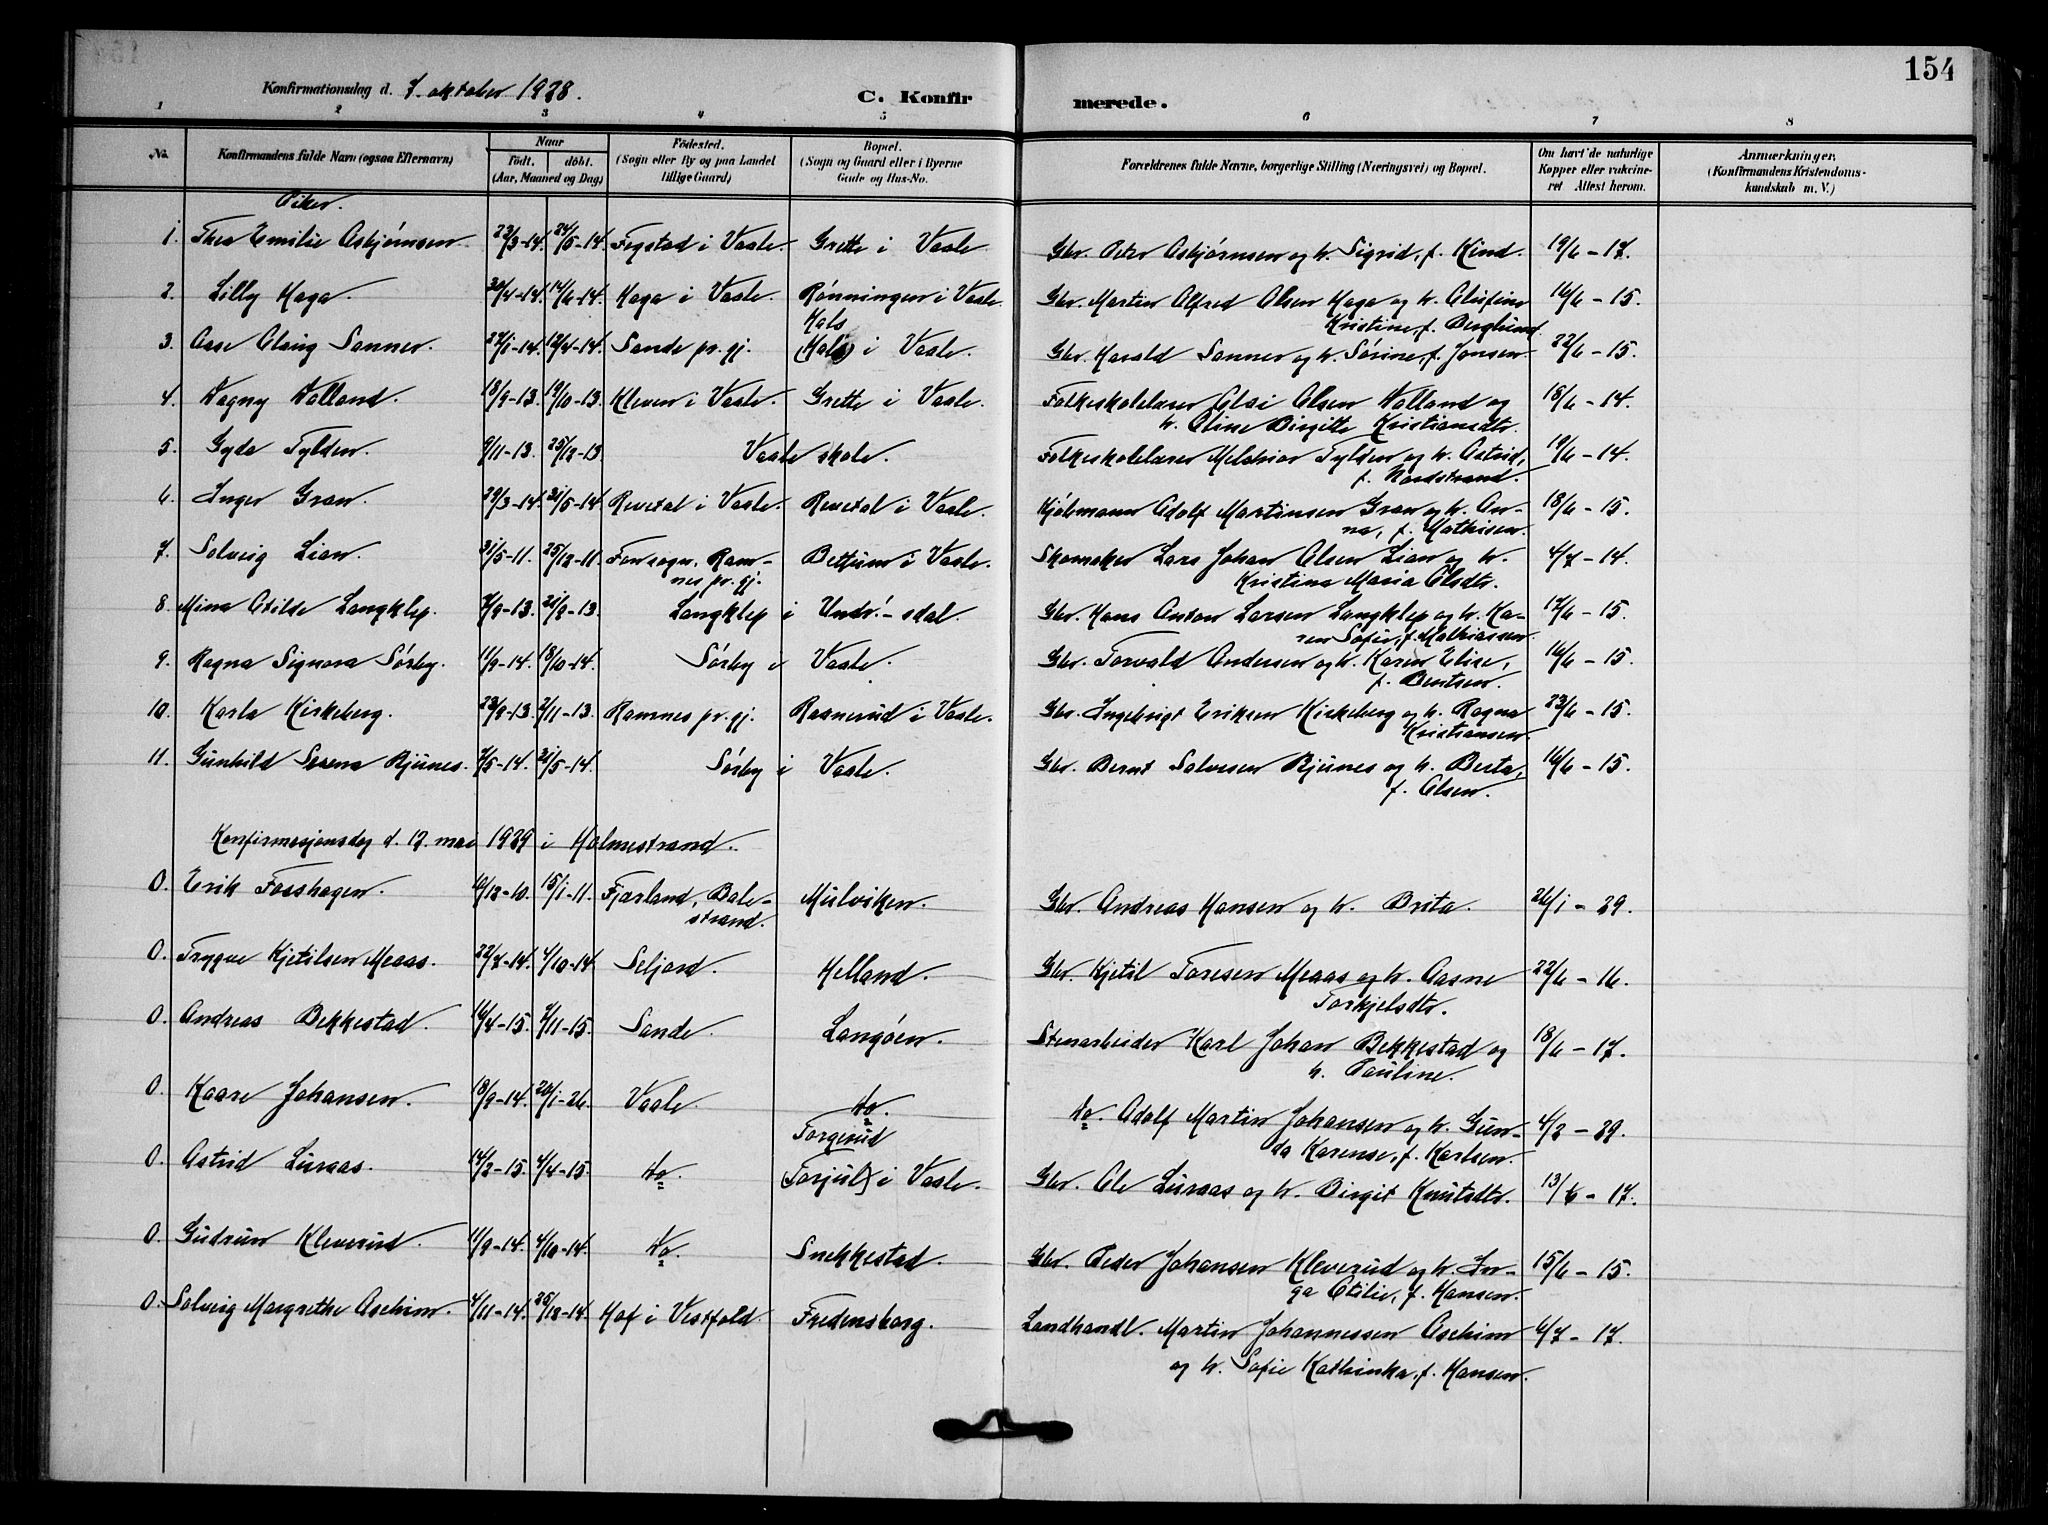 154
Konfirmationsdag d. 7. oktober 1928.
C. Konfirmerede.
1 2 3 4 5 6 7 8
No. Konfirmandens fulde Navn (ogsaa Efternavn) Naar Födt. döbt. (Aar, Maaned og Dag) Födested. (Sogn eller By og paa Landet tillige Gaard) Bopæl. (Sogn og Gaard eller i Byerne Gade og Hus-No. Forældrenes fulde Navne, borgerlige Stilling (Næringsvei) og Bopæl. Om havt de naturlige Kopper eller vakcineret Attest herom. Anmærkninger, (Konfirmandens Kristendomskundskab m. V.)
Piker.
1. Thea Emilie Asbjørnsen 23/3-14. 24/5-14. Fegstad i Vaale. Grette i Vaale. Gbr. Peter Asbjørnsen og h. Sigrid, f. Kind. 19/6-17.
2. Lilly Haga. 30/4-14. 14/6-14. Haga i Vaale. Rønningen i Vaale. Gbr. Martin Alfred Olsen Haga og h. Olufine
Kristine, f. Berglund. 16/6-15.
3. Aase Olaug Sanner. 27/1-14. 12/4-14. Sande pr.gj. Hals
(Hals) i Vaale. Gbr. Harald Sanner og h. Sørine, f. Jonsen. 22/6-15.
4. Dagny Dalland. 18/9-13. 19/10-13. Kleven i Vaale. Grette i Vaale. Folkeskolelærer Olai Olsen Dalland og
h. Oline Birgitte Kristiansdtr. 18/6-14.
5. Gyda Tylden. 9/11-13. 25/12-13 Vaale skole. Folkeskolelærer Melchior Tylden og h. Astrid,
f. Nordstrand. 19/6-14.
6. Inger Gran. 29/3-14. 31/5-14. Revetal i Vaale. Revetal i Vaale. Kjøbmann Adolf Martinsen Gran og h. An-
na, f. Mathisen. 18/6-15.
7. Solveig Lian. 31/5-11. 25/12-11. Fon sogn, Ram-
nes pr.gj. Bettum i Vaale. Skomaker Lars Johan Olsen Lian og h.
Kristine Maria Olsdtr. 4/7-14.
8. Mina Otilde Langklep. 7/9-13. 21/9-13. Langklep i Undr.-sdal. Gbr. Hans Anton Larsen Langklep og h. Ka-
ren Sofie, f. Mathiassen. 17/6-15.
9. Ragna Signora Sørby. 11/9-14. 18/10-14. Sørby i Vaale. Gbr. Torvald Andersen og h. Karen Elise,
f. Bentsen. 16/6-15.
10. Karla Kirkeberg. 23/9-13. 2/11-13. Ramnes pr.gj. Raanerud i Vaale. Gbr. Ingebrigt Eriksen Kirkeberg og h. Ragna
Kristiansen. 23/6-15.
11. Gunhild Serena Rjunes. 7/5-14. 31/5-14. Sørby i Vaale. Gbr. Bernt Salvesen Rjunes og h. Berta,
f. Olsen. 16/6-15.
Konfirmasjonsdag d. 12. mai 1929 i Holmestrand.
0. Erik Fosshagen. 10/12-10. 15/1-11. Fjærland, Bale-
strand. Mulviken. Gbr. Andreas Hansen og h. Brita. 26/1-29.
0. Trygve Kjetilsen Meaas. 22/7-14. 4/10-14. Seljord. Helland. Gbr. Kjetil Toresen Meaas og h. Aasne
Torkjelsdtr. 22/6-16.
0. Andreas Bekkestad. 16/4-15. 7/11-15. Sande. Langøen. Stenarbeider Karl Johan Bekkestad og
h. Pauline. 18/6-17.
0. Kaare Johansen. 18/9-14. 20/1-26. Vaale. do. do. Adolf Martin Johansen og h. Gun-
da Karense, f. Karlsen. 4/2-29.
0. Astrid Luraas. 14/2-15. 4/4-15. do. Torgerud
(Torjul) i Vaale. Gbr. Ole Luraas og h. Birgit Knutsdtr. 13/6-17.
0. Gudrun Kleverud. 11/9-14. 4/10-14. do. Snekkestad. Gbr. Peder Johansen Kleverud og h. In-
ga Otilie, f. Hansen. 15/6-15.
0. Solveig Margrethe Aseheim. 4/11-14. 25/12-14. Hof i Vestfold. Fredensborg. Landhandl. Martin Johannessen Aseheim
og h. Sofie Kathinka, f. Hansen. 6/7-17.